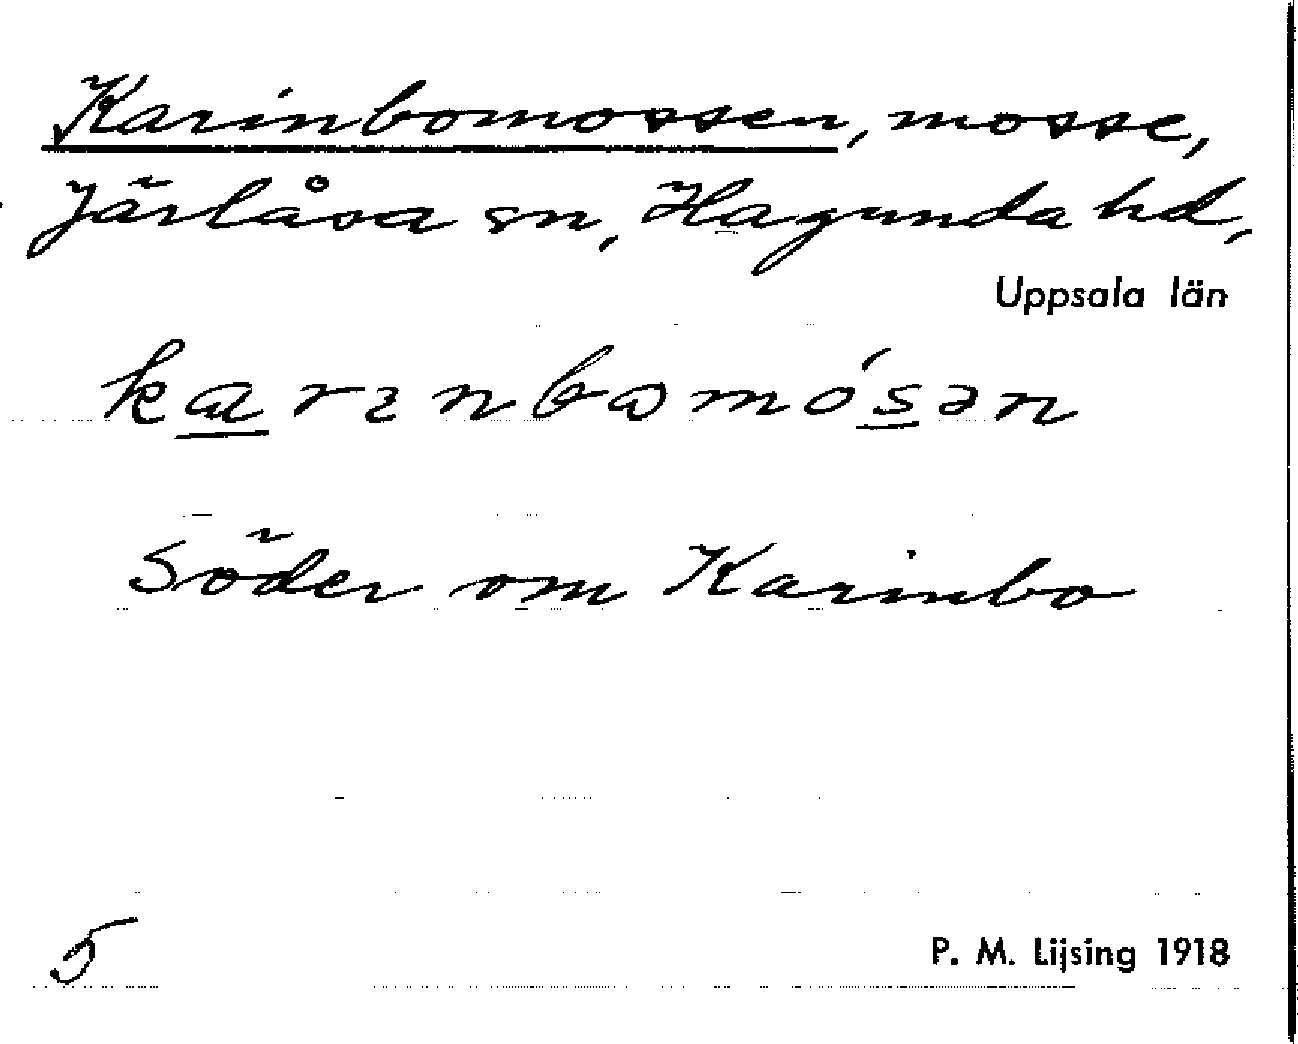 Karinbomossen, mosse,
Järlåsa sn, Hagunda hd,
Uppsala län
karınbωmósən
Söder om Karinbo
5
P. M. Lijsing 1918